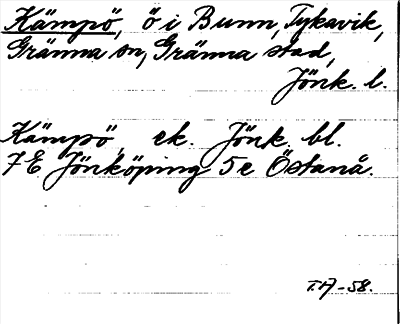 Kämpö, ö i Bunn, Tykavik,
Gränna sn, Gränna stad,
Jönk. l.
Kämpö, ek. Jönk. bl.
7E Jönköping 5e Östanå.
T.H-58.